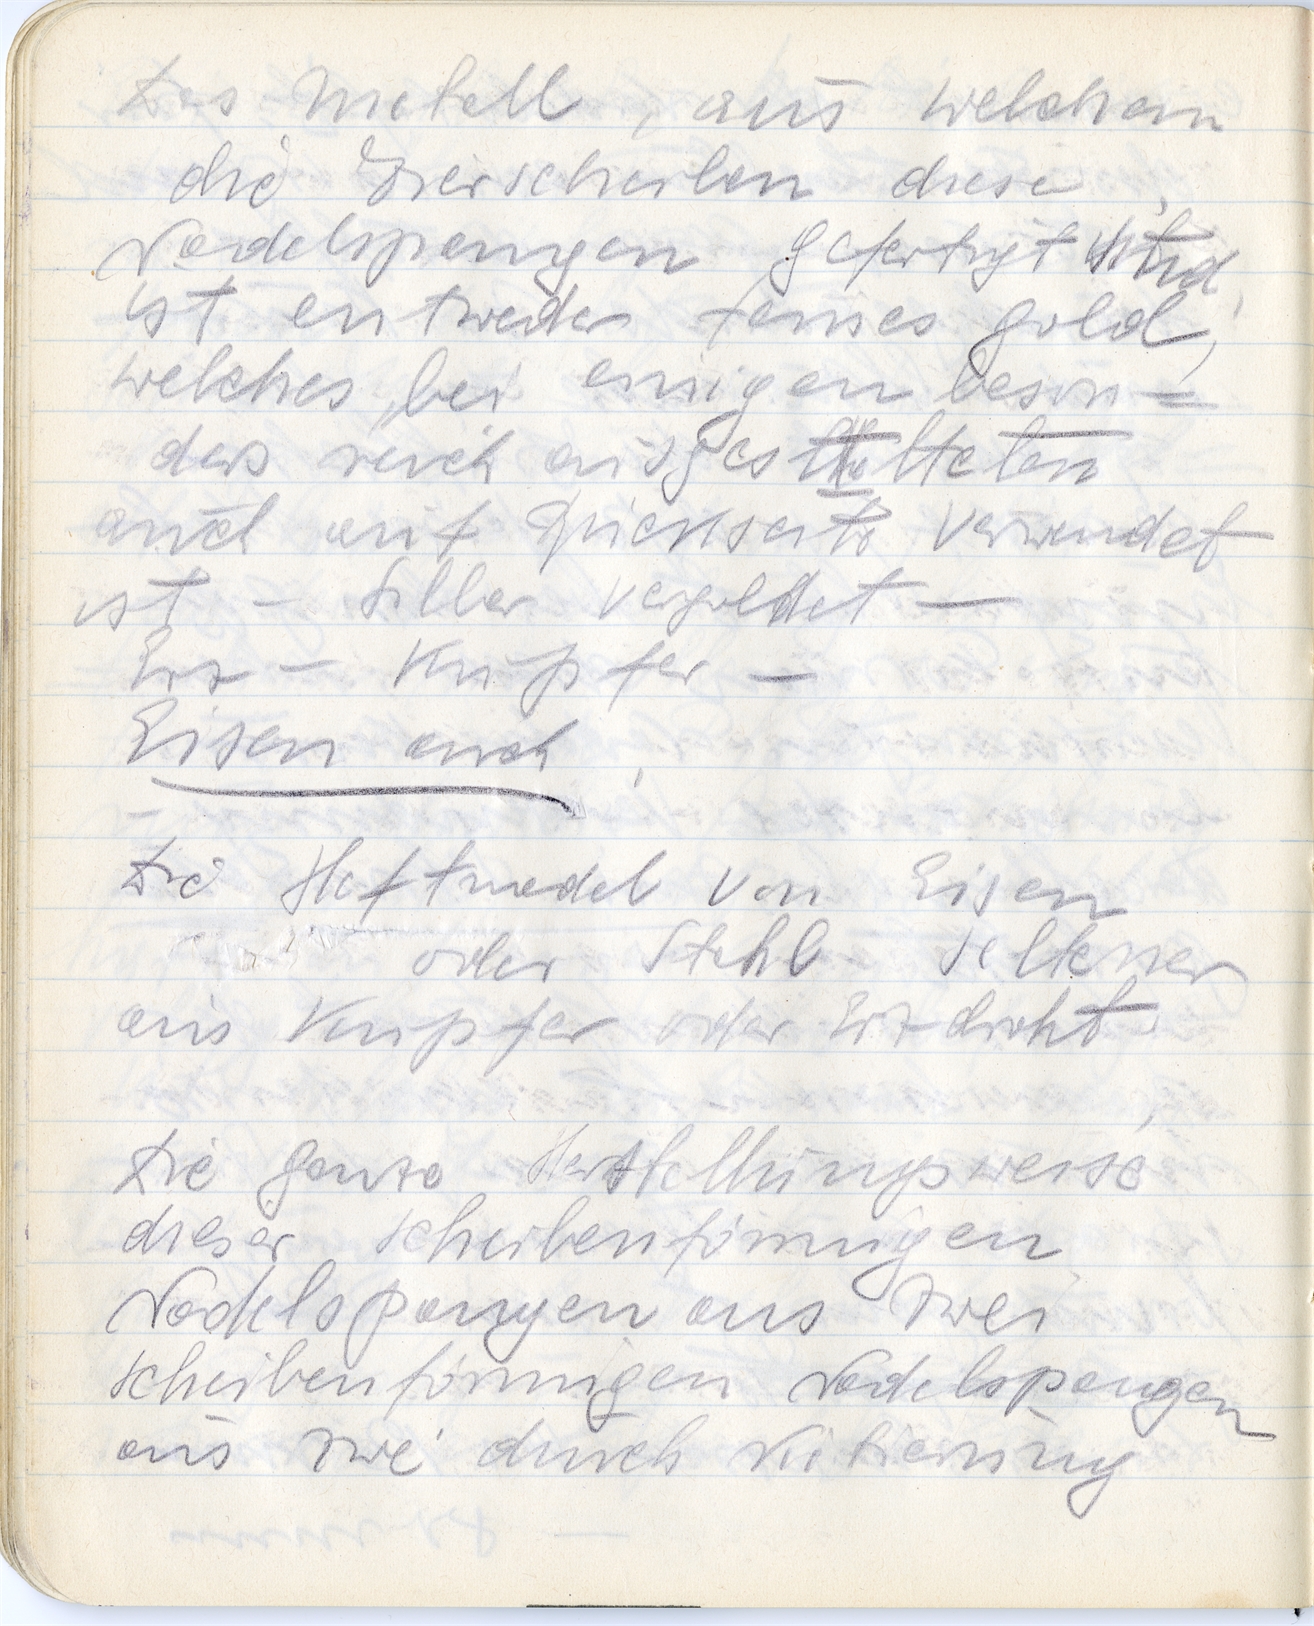 Das Metall, aus welchem
die Zierscheiben diese
Nadelspangen gefertigt sind,
ist entweder feines Gold,
welches bei einigen beson=
ders reich ausgestalteten
auch auf Rückseite verwendet
ist – Silber vergoldet –
Erz – Kupfer –
Eisen auch,
Die Heftnadel von Eisen
oder Stahl seltener
aus Kupfer oder Erzdraht
Die ganze Herstellungsweise
dieser scheibenförmigen
Nadelspangen aus zwei
scheibenförmigen Nadelspangen
aus zwei durch